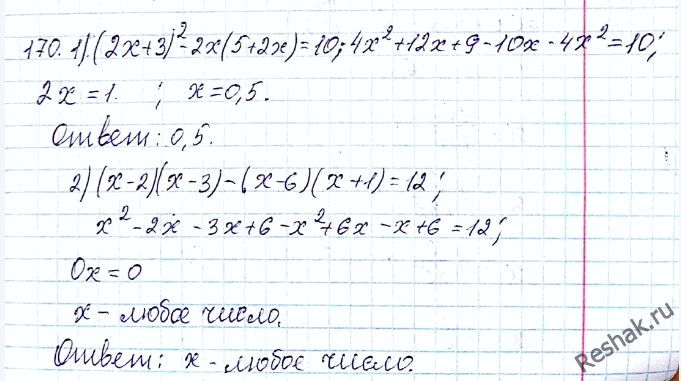 170. 1) (2x+3)² - 2x(5+2x) = 10; 4x² + 12x + 9 - 10x - 4x² = 10;
2x = 1. ; x = 0,5.
Ответ: 0,5.
2) (x-2)(x-3) - (x-6)(x+1) = 12;
x² - 2x - 3x + 6 - x² + 6x - x + 6 = 12;
0x = 0
x - любое число.
Ответ: x - любое число.
Reshak.ru